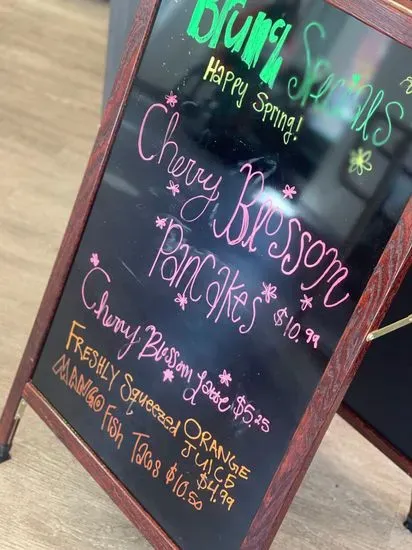 Brunch Specials
Happy Spring!
Cherry Blossom
Pancakes $10.99
Cherry Blossom Latte $5.25
FRESHLY SQueezed ORANGE
JUICE
$4.99
MANGO Fish Tacos $10.50